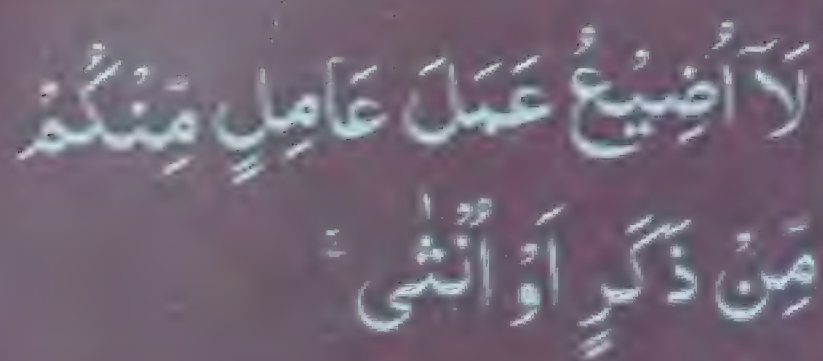 لَاۤ اُضِيْعُ عَمَلَ عَامِلٍ مِّنْكُمْ
مِّنْ ذَكَرٍ اَوْ اُنْثٰى ۚ